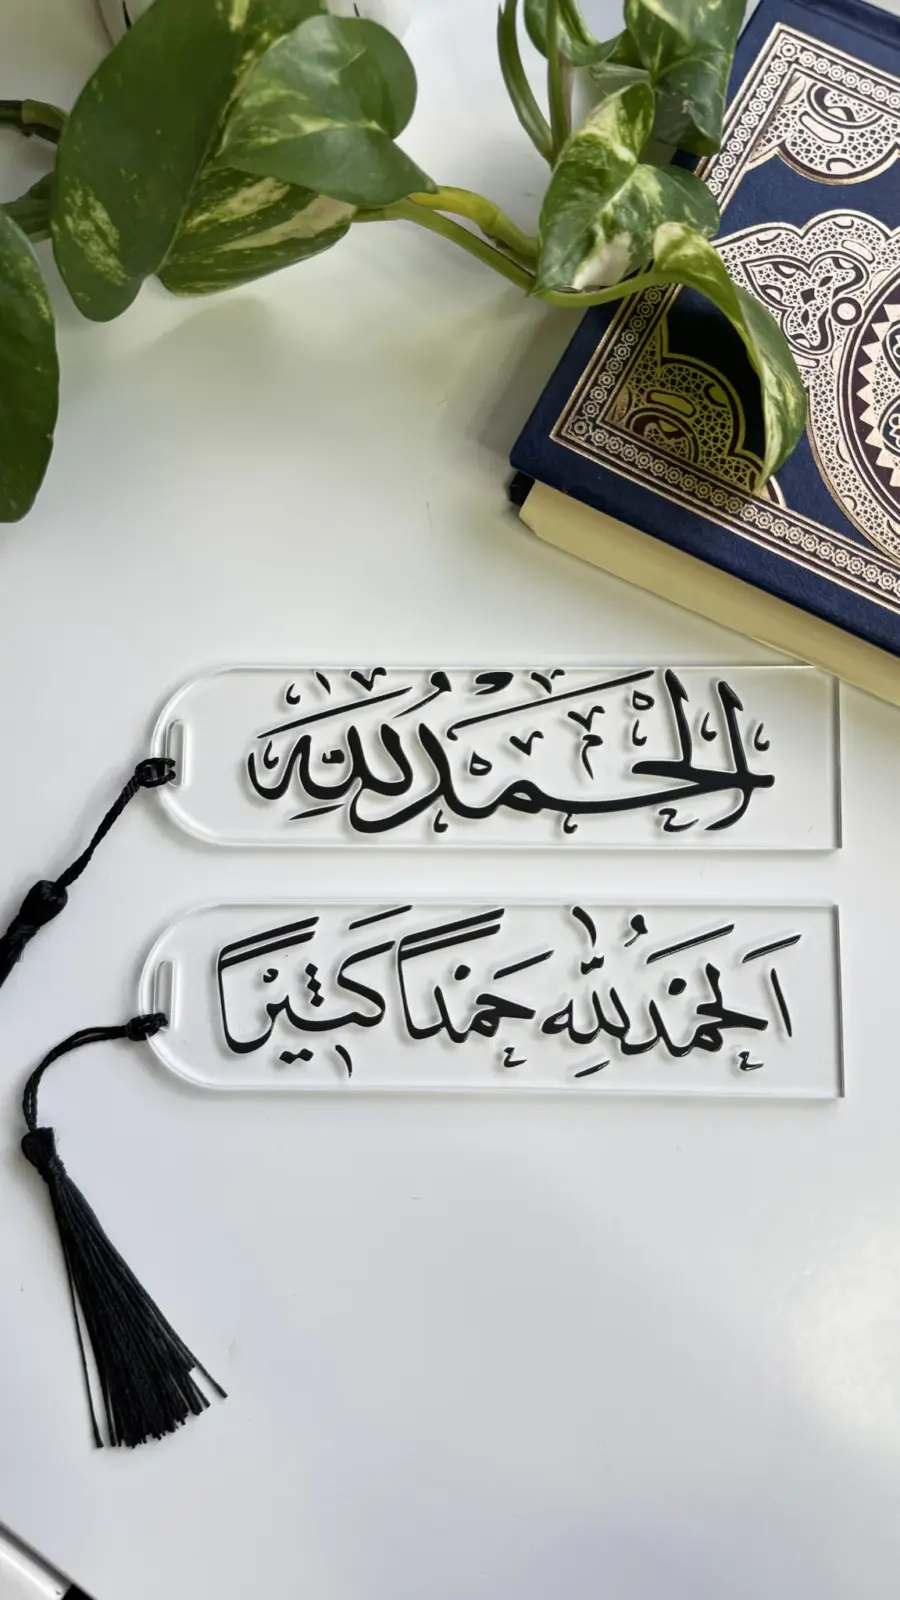 الحمد لله
الحمد لله حمدا كثيرا